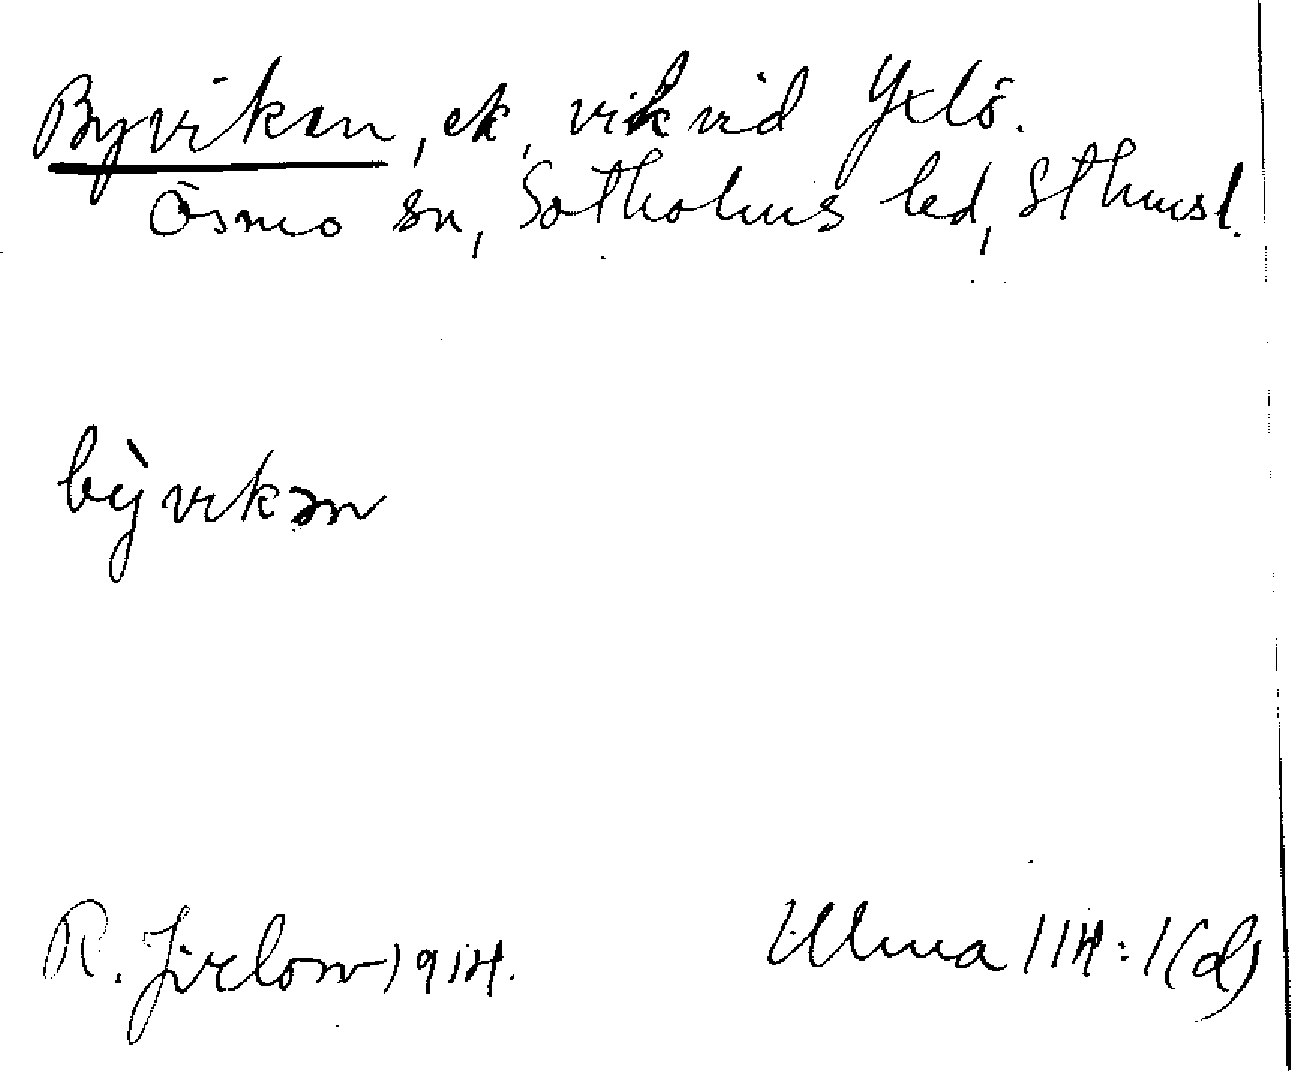 Byviken, ek, vik vid Yxlö.
Ösmo sn, Sotholms hd, Sthmsl.
bỳvikən
R. Jirlow 1914.
Ulma 114:1(d)